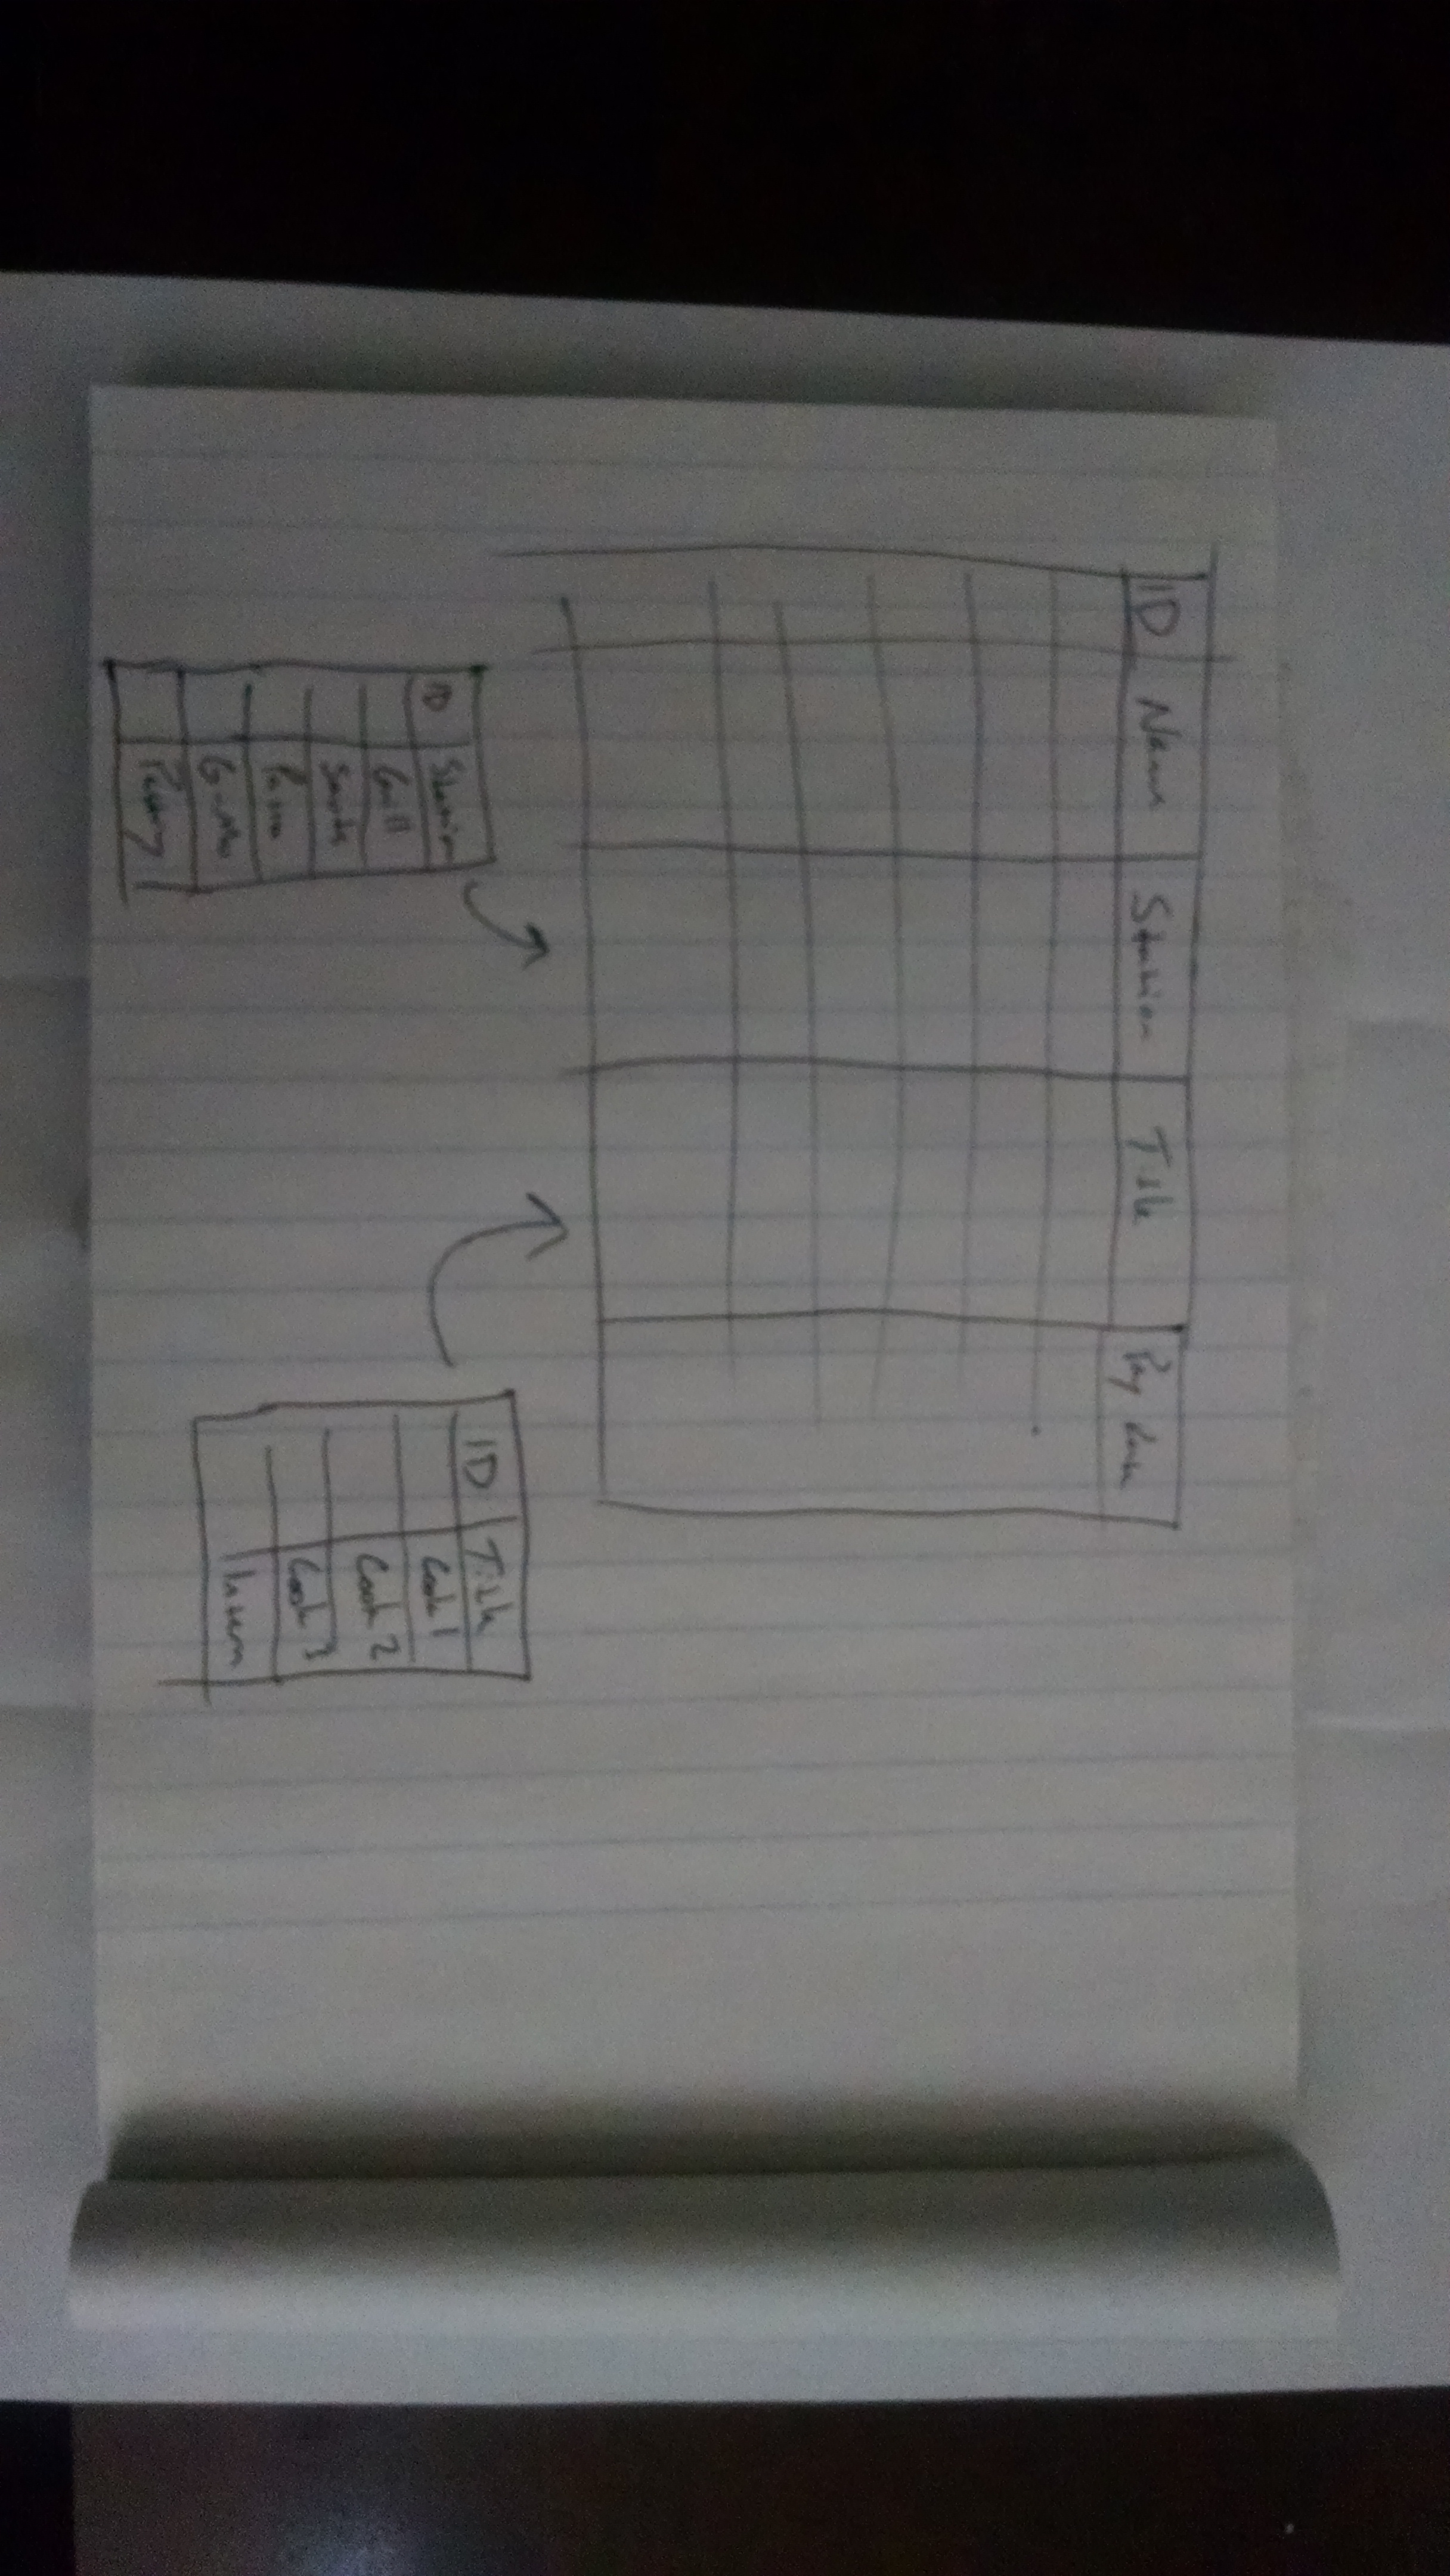 ID Name Station Title Pay Rate
ID Station
Grill
Sauté
Pastry
ID Title
Cook 1
Cook 2
Cook 3